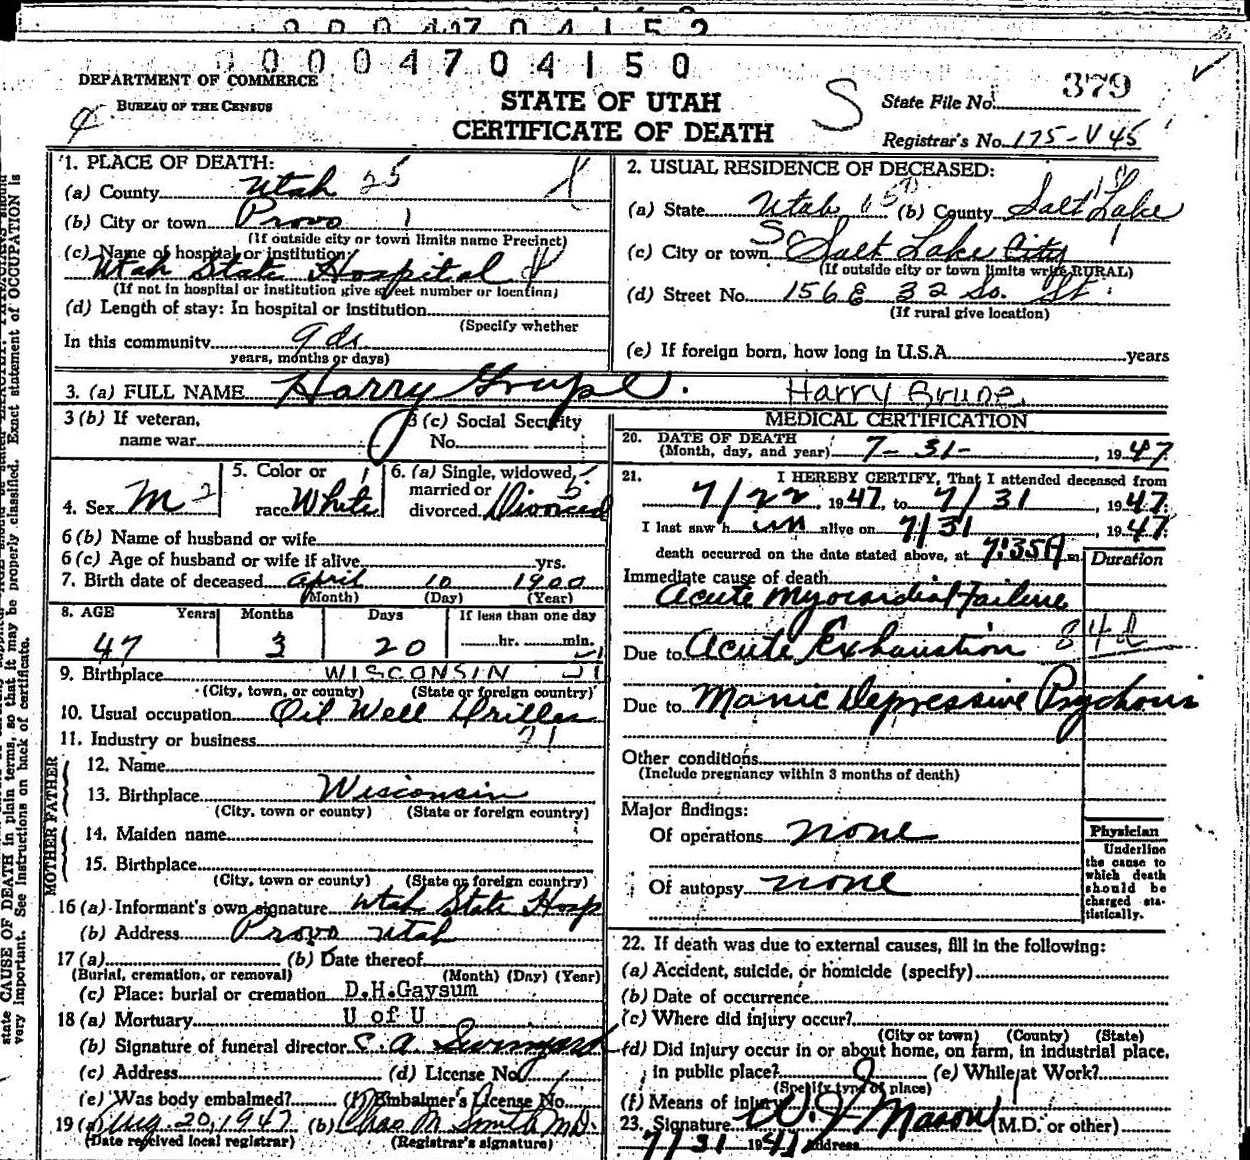 00004704150
DEPARTMENT OF COMMERCE
BUREAU OF THE CENSUS
STATE OF UTAH
CERTIFICATE OF DEATH
S
State File No. 379
Registrar's No. 175-V45
1. PLACE OF DEATH:
(a) County Utah 25
(b) City or town Provo 1
(If outside city or town limits name Precinct)
(c) Name of hospital or institution:
Utah State Hospital
(If not in hospital or institution give street number or location)
(d) Length of stay: In hospital or institution
(Specify whether
In this community 9 ds
years, months or days)
2. USUAL RESIDENCE OF DECEASED:
(a) State Utah (b) County Salt Lake
(c) City or town So Salt Lake City
(If outside city or town limits write RURAL)
(d) Street No. 156 E 32 So. St.
(If rural give location)
(e) If foreign born, how long in U.S.A. years
3. (a) FULL NAME Harry Grupe. Harry Grupe.
3 (b) If veteran,
name war
3 (c) Social Security
No.
4. Sex M 2
5. Color or
race White
6. (a) Single, widowed,
married or
divorced. Divorced 5
6 (b) Name of husband or wife
6 (c) Age of husband or wife if alive yrs.
7. Birth date of deceased April 10 1900
(Month) (Day) (Year)
8. AGE Years Months Days If less than one day
47 3 20 hr. min.
9. Birthplace WISCONSIN
(City, town, or county) (State or foreign country)
10. Usual occupation Oil Well Driller
11. Industry or business
FATHER
12. Name
13. Birthplace Wisconsin
(City, town or county) (State or foreign country)
MOTHER
14. Maiden name
15. Birthplace
(City, town or county) (State or foreign country)
16 (a) Informant's own signature Utah State Hosp
(b) Address Provo Utah
17 (a) (b) Date thereof
(Burial, cremation, or removal) (Month) (Day) (Year)
(c) Place: burial or cremation D.H.Gaysum
18 (a) Mortuary U of U
(b) Signature of funeral director C. A. Swinyard
(c) Address (d) License No.
(e) Was body embalmed? (f) Embalmer's License No.
19 (a) Aug. 20, 1947 (b) Chas M. Smith M.D.
(Date received local registrar) (Registrar's signature)
MEDICAL CERTIFICATION
20. DATE OF DEATH
(Month, day, and year) 7-31-, 1947
21. I HEREBY CERTIFY, That I attended deceased from
7/22 1947, to 7/31, 1947.
I last saw him alive on 7/31, 1947.
death occurred on the date stated above, at 7:35A m.
Duration
Immediate cause of death
Acute Myocardial Failure
Due to Acute Exhaustion 84d
Due to Manic Depressive Psychosis
Other conditions
(Include pregnancy within 3 months of death)
Major findings:
Of operations none
Of autopsy none
Physician
Underline
the cause to
which death
should be
charged sta-
tistically.
22. If death was due to external causes, fill in the following:
(a) Accident, suicide, or homicide (specify)
(b) Date of occurrence
(c) Where did injury occur?
(City or town) (County) (State)
(d) Did injury occur in or about home, on farm, in industrial place,
in public place? (e) While at Work?
(Specify type of place)
(f) Means of injury
23. Signature W J Mason (M.D. or other)
7/31 1947 Address
state CAUSE OF DEATH in plain terms, so that it may be properly classified. Exact statement of OCCUPATION is
very important. See instructions on back of certificate.